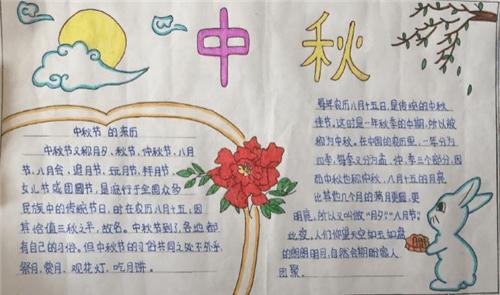 中秋
中秋节的来历
中秋节又称月夕、秋节、仲秋节、八月
节、八月会、追月节、玩月节、拜月节、
女儿节或团圆节，是流行于全国众多
民族中的传统节日，时在农历八月十五；因
其恰值三秋之半，故名。中秋节到了各地都
有自己的习俗。但中秋节的习俗共同之处不外乎
祭月、赏月、观花灯、吃月饼。
每年农历八月十五日，是传统的中秋
佳节。这时是一年秋季的中期，所以被
称为中秋。在中国的农历里，一年分为
四季，每季又分为孟、仲、季三个部分，因
而中秋也称仲秋。八月十五的月亮
比其他几个月的满月更圆，更
明亮，所以又叫做"月夕""八月节"。
此夜，人们仰望天空如玉如盘
的朗朗明月，自然会期盼家人
团聚。